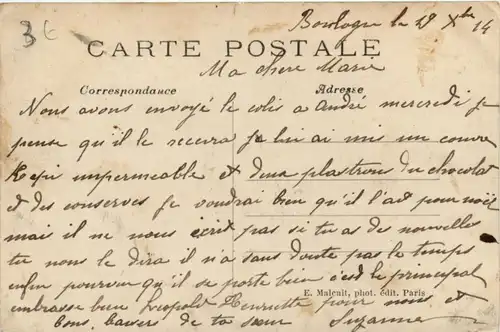 3€
Boulogne le 18 Xbre 14
CARTE POSTALE
Ma chere Marie
Correspondance
Adresse
Nous avons envoyé le colis a André mercredi je
pense qu'il le recevra je lui ai mis un couvre
Kepi impermeable et deux plastrons du chocolat
et des conserves je voudrai bien qu'il l'ait pour noël
mais il ne nous écrit pas si tu as des nouvelles
tu nous le dira il n'a sans doute pas le temps
enfin pourvu qu'il se porte bien c'est le principal
E. Malcuit, phot. édit. Paris
embrasse bien Leopold Henriette pour nous et
bons baisers de ta sœur Suzanne